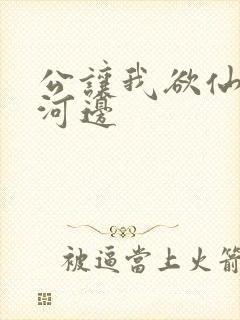 公讓我欲仙
河邊
被逼當上火箭